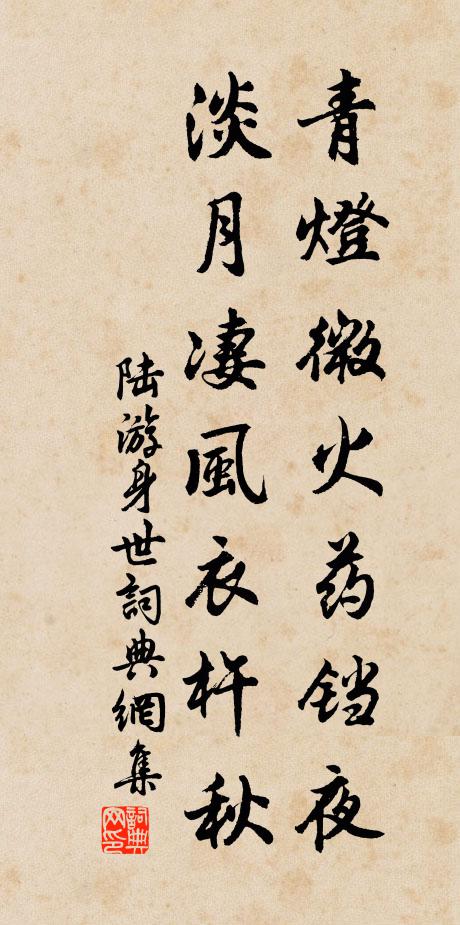 青燈微火药铛夜
淡月凄風衣杵秋
陆游身世詞典網集
詞典
网印